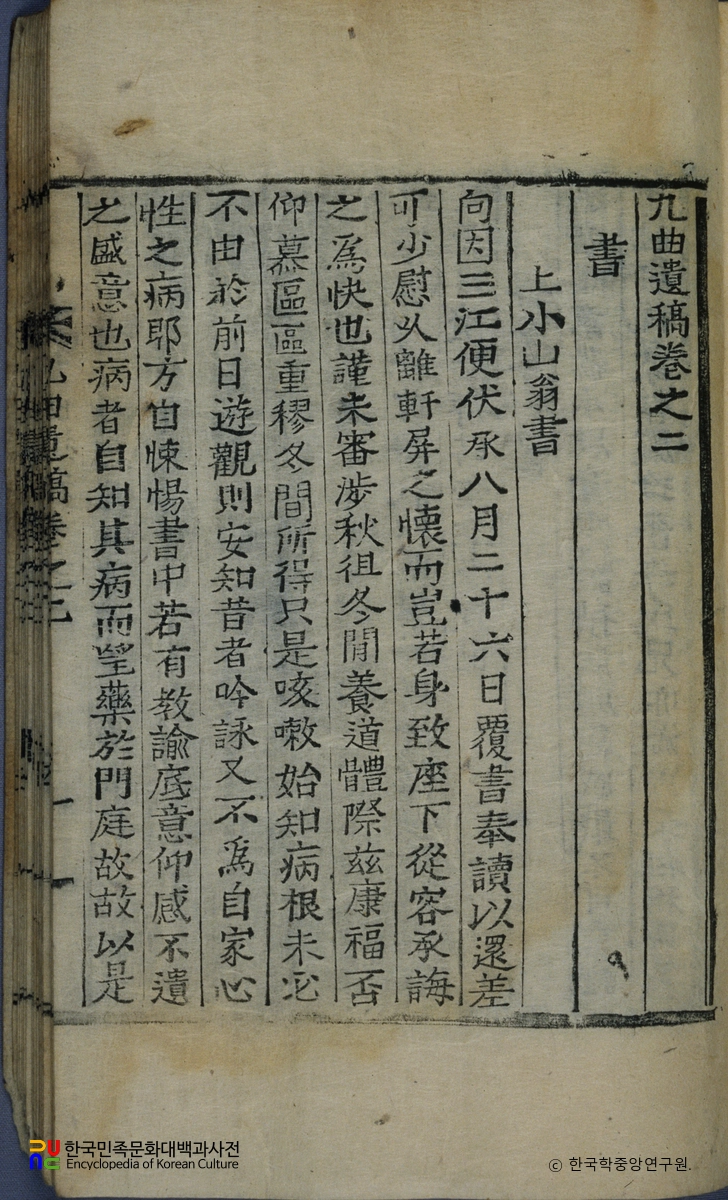 九曲遺稿卷之二
書
上小山翁書
向因三江便伏承八月二十六日覆書奉讀以還差
可少慰乆離軒屛之懷而豈若身致座下從容承誨
之爲快也謹未審涉秋徂冬閒養道體際玆康福否
仰慕區區重穆冬間所得只是咳嗽始知病根未必
不由於前日遊觀則安知昔者吟詠又不爲自家心
性之病耶方自悚惕書中若有敎諭底意仰感不遺
之盛意也病者自知其病而望藥於門庭故故以是
九曲遺稿卷之二
一
한국민족문화대백과사전
Encyclopedia of Korean Culture
ⓒ 한국학중앙연구원.